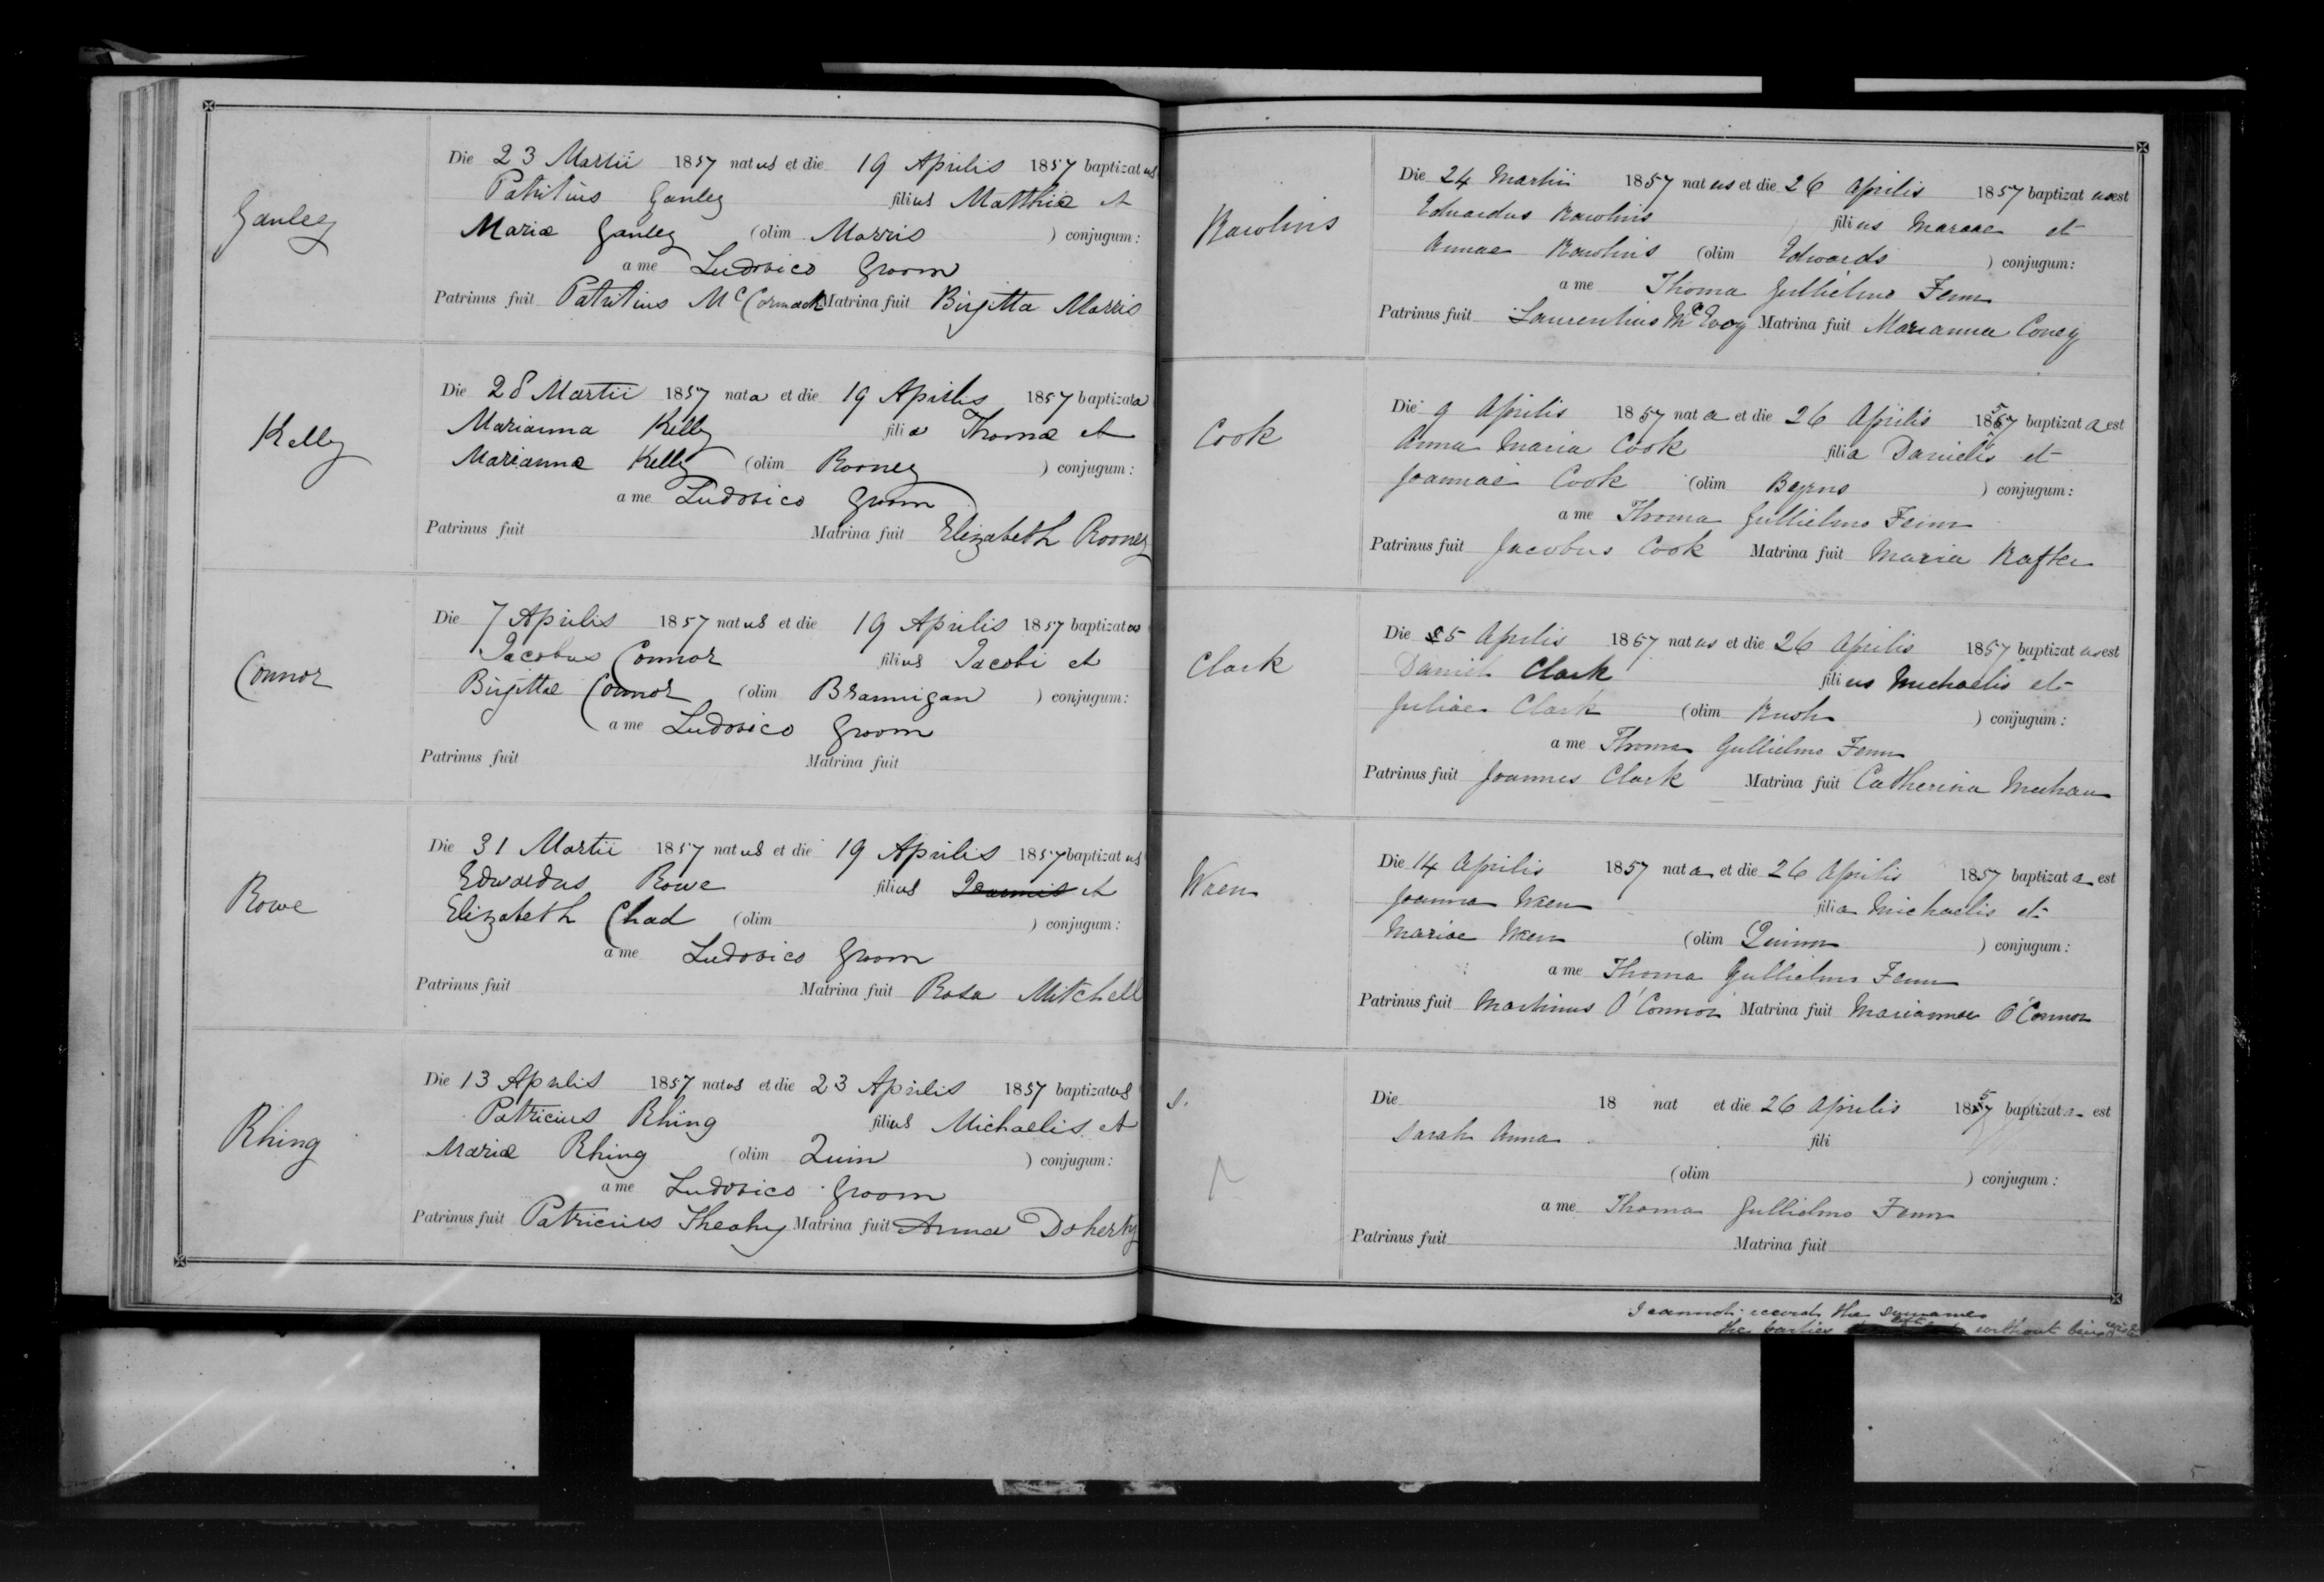 Ganley
Die 23 Martii 1857 natus et die 19 Aprilis 1857 baptizatus
Patritius Ganley filius Matthiæ et
Mariæ Ganley (olim Morris ) conjugum:
a me Ludovico Groom
Patrinus fuit Patritius McCormack Matrina fuit Birgitta Morris
Kelly
Die 28 Martii 1857 nata et die 19 Aprilis 1857 baptizata
Marianna Kelly filia Thomæ et
Mariannæ Kelly (olim Rooney ) conjugum:
a me Ludovico Groom
Patrinus fuit Matrina fuit Elizabeth Rooney
Connor
Die 7 Aprilis 1857 natus et die 19 Aprilis 1857 baptizatus
Jacobus Connor filius Jacobi et
Birgittæ Connor (olim Brannigan ) conjugum:
a me Ludovico Groom
Patrinus fuit Matrina fuit
Rowe
Die 31 Martii 1857 natus et die 19 Aprilis 1857 baptizatus
Edwardus Rowe filius Joannis et
Elizabeth Chad (olim ) conjugum:
a me Ludovico Groom
Patrinus fuit Matrina fuit Rosa Mitchell
Rhing
Die 13 Aprilis 1857 natus et die 23 Aprilis 1857 baptizatus
Patricius Rhing filius Michaelis et
Mariæ Rhing (olim Quin ) conjugum:
a me Ludovico Groom
Patrinus fuit Patricius Sheahy Matrina fuit Anna Doherty
Rawlins
Die 24 Martii 1857 natus et die 26 Aprilis 1857 baptizatus est
Eduardus Rawlins filius Marcae et
Annae Rawlins (olim Edwards ) conjugum:
a me Thoma Gullielmo Fenn
Patrinus fuit Laurentius McEvoy Matrina fuit Marianna Coney
Cook
Die 9 Aprilis 1857 nata et die 26 Aprilis 1857 baptizata est
Anna Maria Cook filia Danielis et
Joannae Cook (olim Beyrns ) conjugum:
a me Thoma Gullielmo Fenn
Patrinus fuit Jacobus Cook Matrina fuit Maria Rafter
Clark
Die 5 Aprilis 1857 natus et die 26 Aprilis 1857 baptizatus est
Daniel Clark filius Michaelis et
Juliae Clark (olim Rush ) conjugum:
a me Thoma Gullielmo Fenn
Patrinus fuit Joannes Clark Matrina fuit Catherina Meehan
Wren
Die 14 Aprilis 1857 nata et die 26 Aprilis 1857 baptizata est
Joanna Wren filia Michaelis et
Mariae Wren (olim Quinn ) conjugum:
a me Thoma Gullielmo Fenn
Patrinus fuit Martinus O'Connor Matrina fuit Mariannae O'Connor
S.
Die 18 nat et die 26 Aprilis 1857 baptizata est
Sarah Anna fili
(olim ) conjugum:
a me Thoma Gullielmo Fenn
Patrinus fuit Matrina fuit
I cannot record the surnames
the parties without being